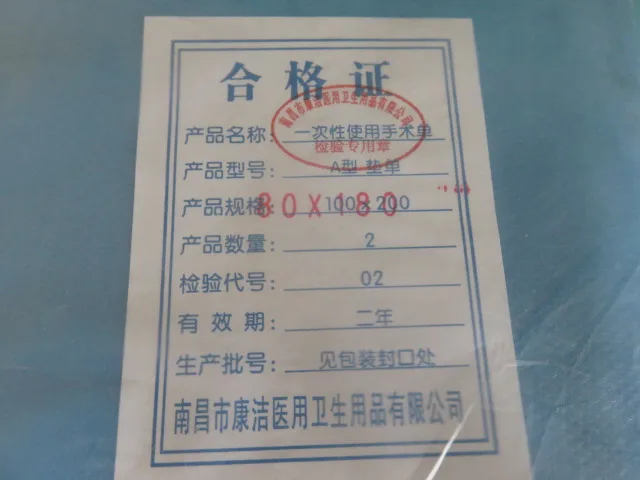 合格证
南昌市康洁医用卫生用品有限公司
检验专用章
产品名称：一次性使用手术单
产品型号：A型 垫单
产品规格：100×200
80X180
产品数量：2
检验代号：02
有效期：二年
生产批号：见包装封口处
南昌市康洁医用卫生用品有限公司